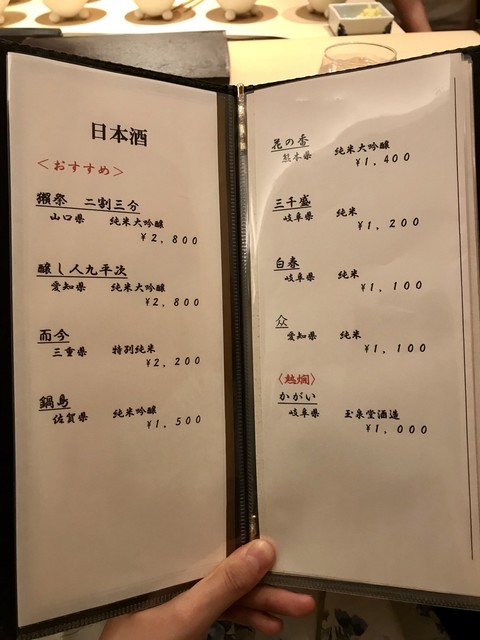 日本酒
＜おすすめ＞
獺祭 二割三分
山口県 純米大吟醸
¥2,800
醸し人九平次
愛知県 純米大吟醸
¥2,800
而今
三重県 特別純米
¥2,200
鍋島
佐賀県 純米吟醸
¥1,500
花の香
熊本県 純米大吟醸
¥1,400
三千盛
岐阜県 純米
¥1,200
白春
岐阜県 純米
¥1,100
众
愛知県 純米
¥1,100
〈熱燗〉
かがい
岐阜県 玉泉堂酒造
¥1,000